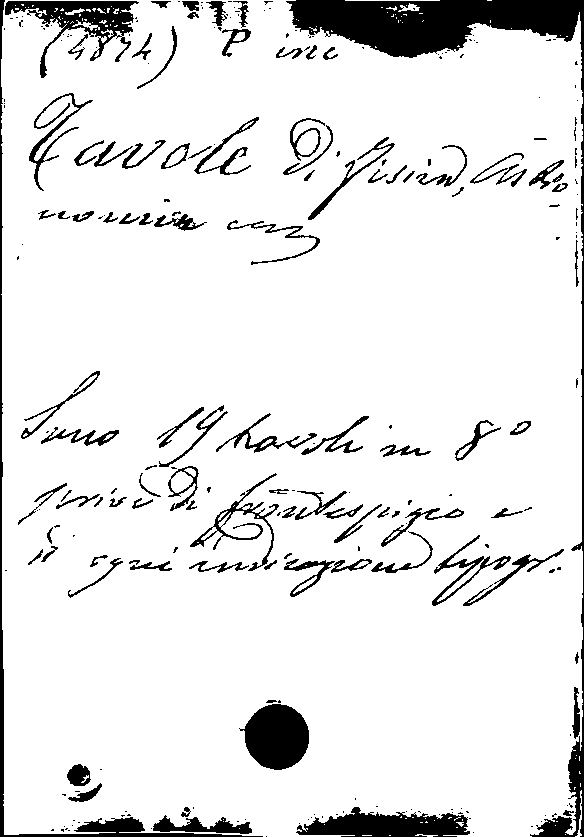 (4874) P inc
Tavole di fisica, Astro-
nomia ecc
Sono 19 tavole in 8º
prive di frontespizio e
di ogni indicazione tipogr.ª